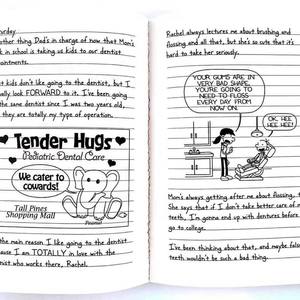 urday
other thing Dad's in charge of now that Mom's
k in school is taking us kids to our dentist
ointments.
t kids don't like going to the dentist, but I
ually look FORWARD to it. I've been going
the same dentist since I was two years old,
they are totally my type of operation.
Tender Hugs
Pediatric Dental Care
We cater to
cowards!
Tall Pines
Shopping Mall
Peanut
the main reason I like going to the dentist
because I am TOTALLY in love with the
ienist who works there, Rachel.
Rachel always lectures me about brushing and
flossing and all that, but she's so cute that it's
hard to take her seriously.
YOUR GUMS ARE IN
VERY BAD SHAPE.
YOU'RE GOING TO
NEED TO FLOSS
EVERY DAY FROM
NOW ON.
OK, HEE
HEE HEE!
Mom's always getting after me about flossing, t
She says that if I don't take better care of m
teeth, I'm gonna end up with dentures before
go to college.
I've been thinking about that, and maybe fals
teeth wouldn't be such a bad thing.